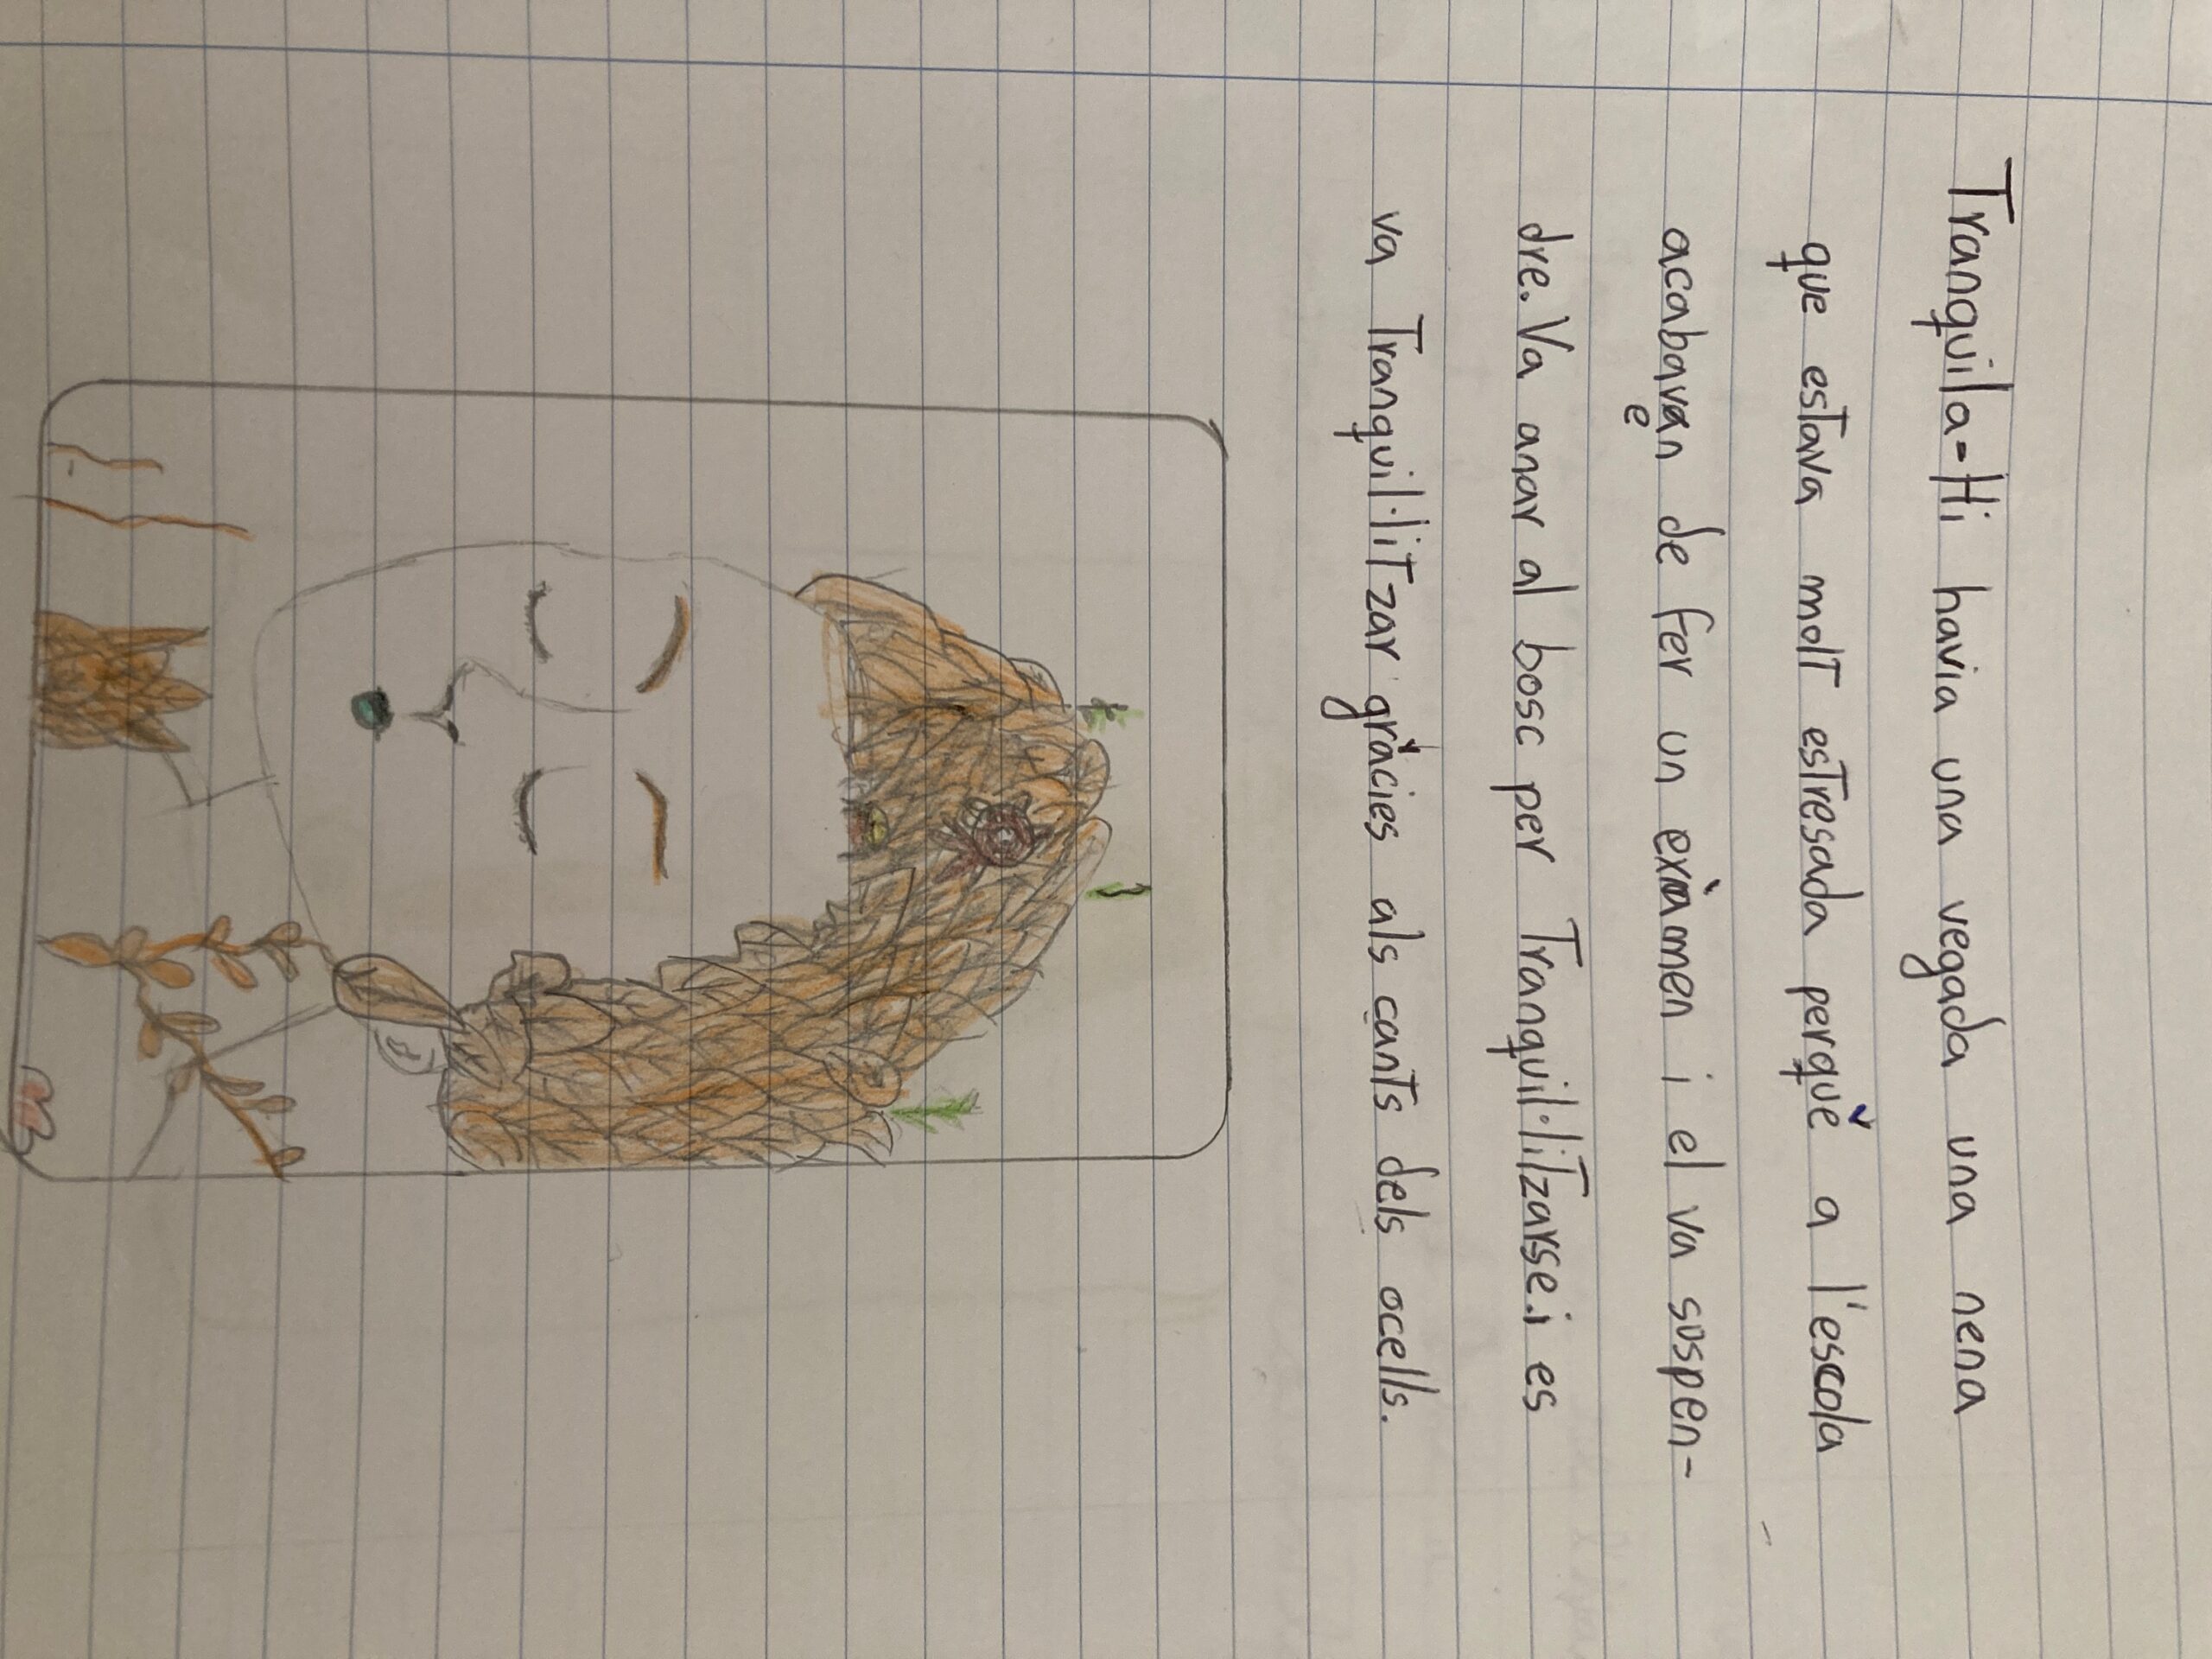 Tranquila-Hi havia una vegada una nena
que estava molt estresada perquè a l'escola
acabaven de fer un exàmen i el va suspen-
dre. Va anar al bosc per Tranquil·litzarse.i es
va Tranquil·litzar gràcies als cants dels ocells.